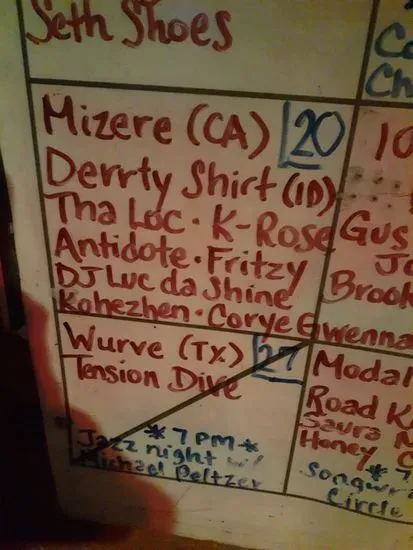 Seth Shoes
Co
Ch
Mizere (CA) 20
Derrty Shirt (ID)
Tha Loc · K-Rose
Antidote · Fritzy
DJ Luc da Shine
Kohezhen · Corye
10
Gus
Jo
Brook
Gwenna
Wurve (Tx) 27
Tension Dive
*7pm*
Jazz night w/
Michael Peltzer
Modal
Road K
Saura
Honey C
*7
Songwr
Circle